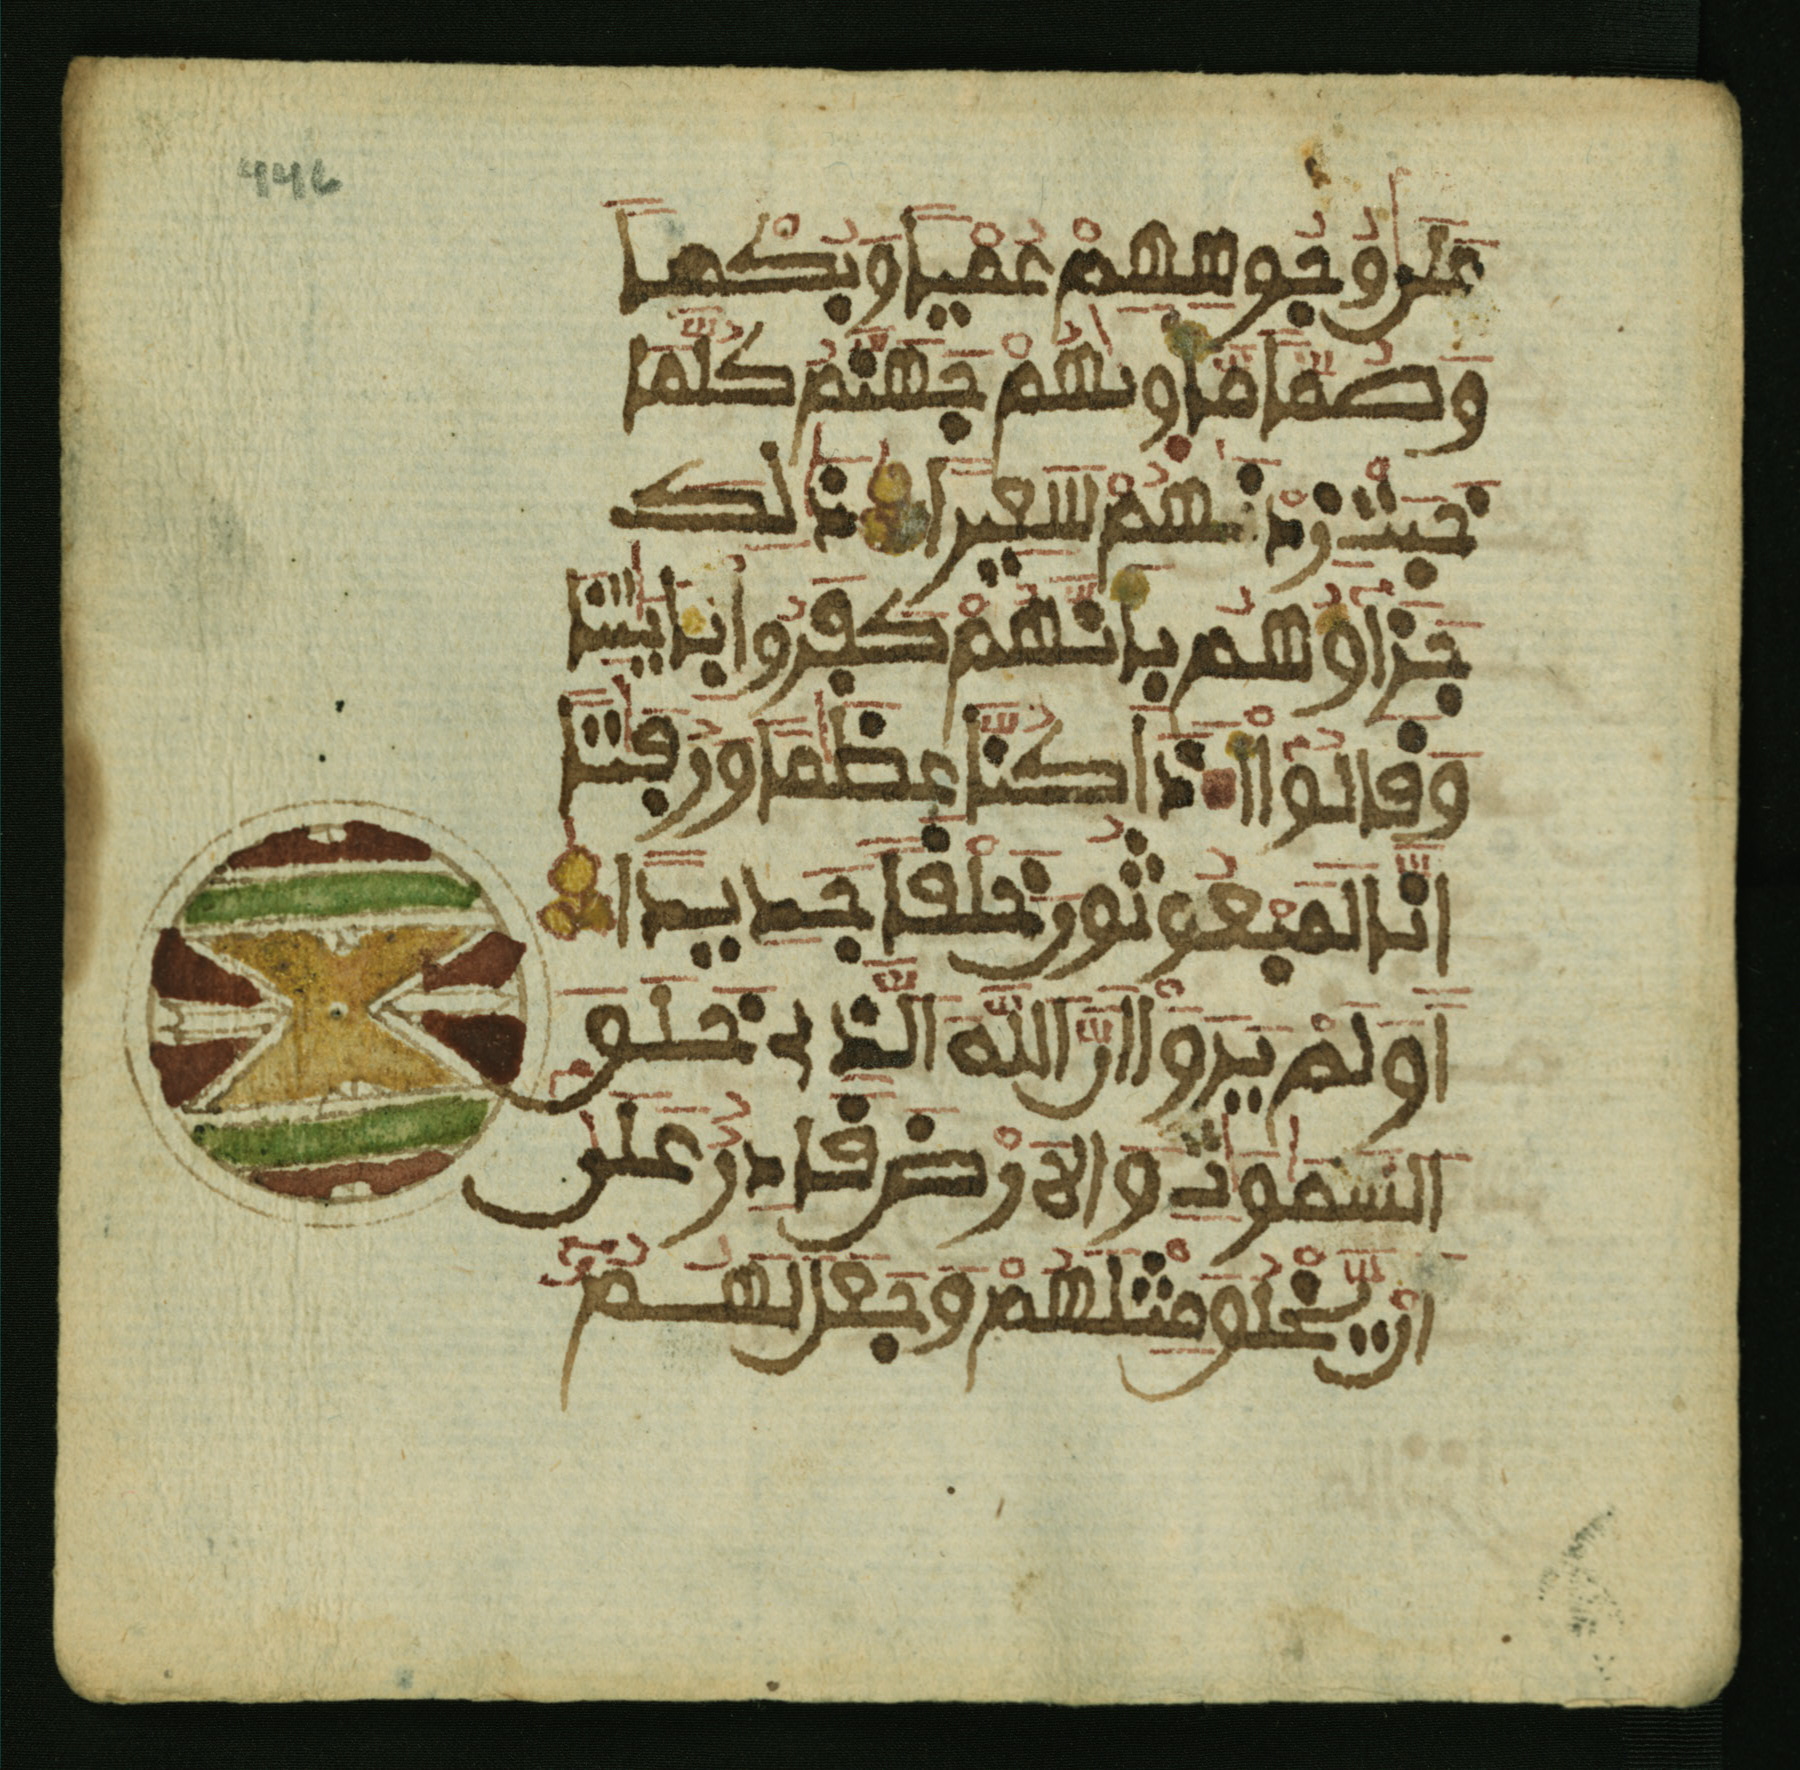 446
عَلَىٰ وُجُوهِهِمْ عُمْيًا وَبُكْمًا
وَصُمًّا مَّأْوٜيٰهُمْ جَهَنَّمُ كُلَّمَا
خَبَتْ زِدْنَٰهُمْ سَعِيرًا ذَٰلِكَ
جَزَاؤُهُم بِأَنَّهُمْ كَفَرُوا بِـَٔايَٰتِنَا
وَقَالُوٓا أَ۟ذَا كُنَّا عِظَٰمًا وَرُفَٰتًا
اِنَّا لَمَبْعُوثُونَ خَلْقًا جَدِيدًا
اَوَلَمْ يَرَوْا اَنَّ اَللَّهَ اَلَّذِى خَلَقَ
اَلسَّمَٰوَٰتِ وَالَارْضَ قَادِرٌ عَلَىٰ
أَنْ يَّخْلُقَ مِثْلَهُمْ وَجَعَلَ لَهُمُۥٓ